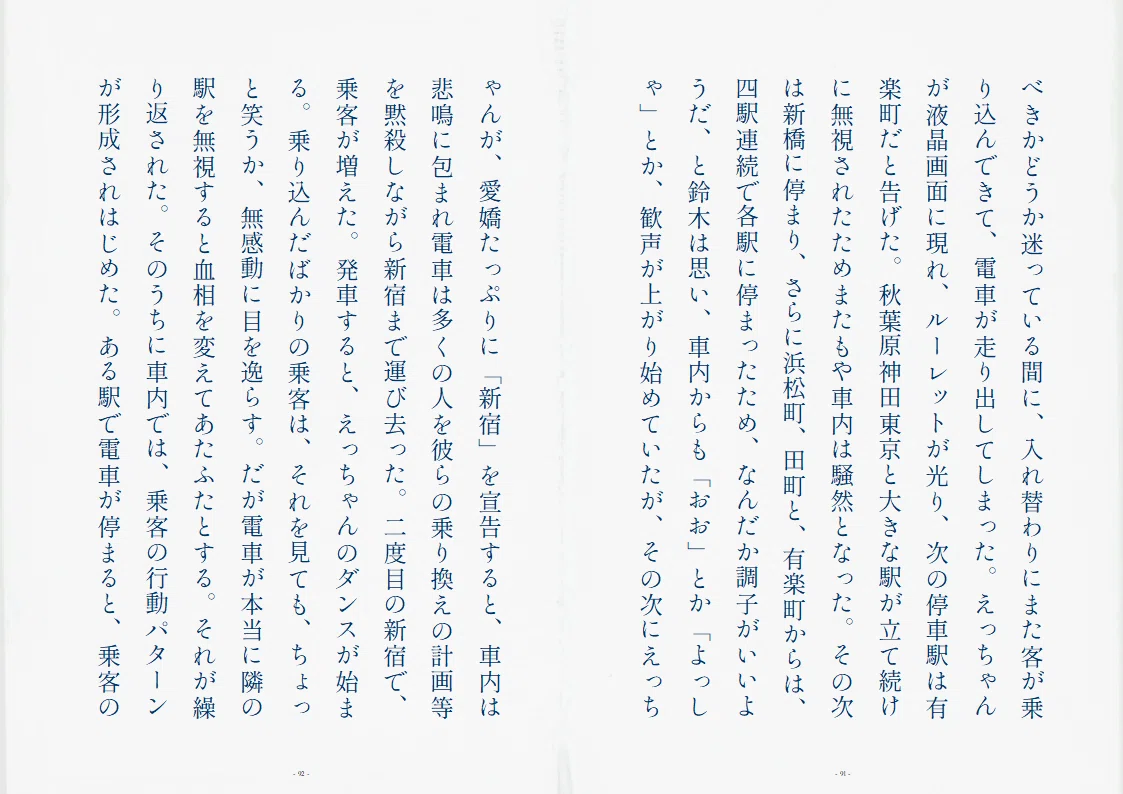 べきかどうか迷っている間に、入れ替わりにまた客が乗
り込んできて、電車が走り出してしまった。えっちゃん
が液晶画面に現れ、ルーレットが光り、次の停車駅は有
楽町だと告げた。秋葉原神田東京と大きな駅が立て続け
に無視されたためまたもや車内は騒然となった。その次
は新橋に停まり、さらに浜松町、田町と、有楽町からは、
四駅連続で各駅に停まったため、なんだか調子がいいよ
うだ、と鈴木は思い、車内からも「おお」とか「よっし
ゃ」とか、歓声が上がり始めていたが、その次にえっち
- 91 -
ゃんが、愛嬌たっぷりに「新宿」を宣告すると、車内は
悲鳴に包まれ電車は多くの人を彼らの乗り換えの計画等
を黙殺しながら新宿まで運び去った。二度目の新宿で、
乗客が増えた。発車すると、えっちゃんのダンスが始ま
る。乗り込んだばかりの乗客は、それを見ても、ちょっ
と笑うか、無感動に目を逸らす。だが電車が本当に隣の
駅を無視すると血相を変えてあたふたとする。それが繰
り返された。そのうちに車内では、乗客の行動パターン
が形成されはじめた。ある駅で電車が停まると、乗客の
- 92 -